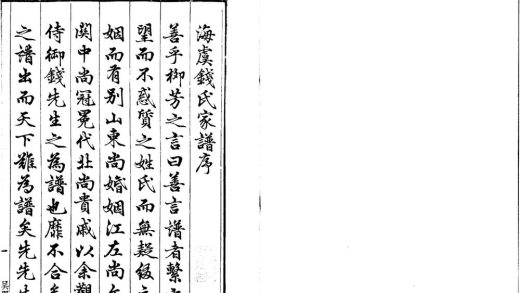 海虞錢氏家譜序
善乎柳芳之言曰善言譜者繫之
望而不惑質之姓氏而無疑綴之
姻而有别山東尚婚姻江左尚人
関中尚冠冕代北尚貴戚以余觀
侍御錢先生之為譜也靡不合矣
之譜出而天下難為譜矣先先生
一